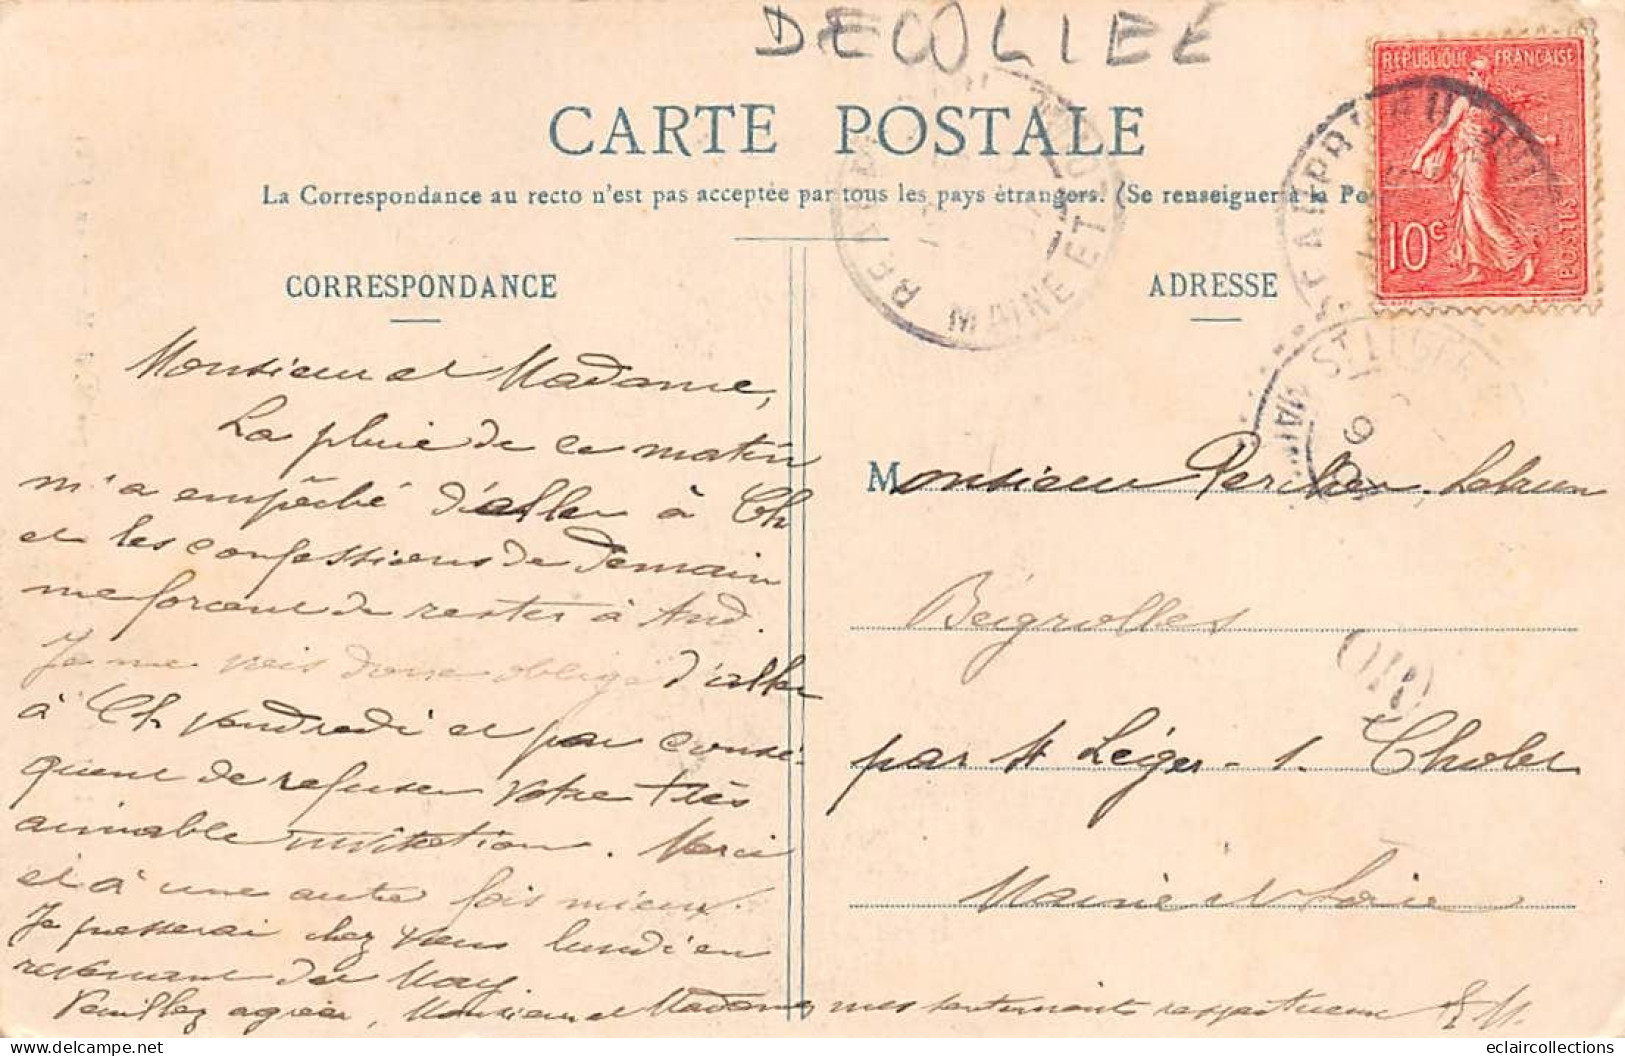 DECOLLEE
REPUBLIQUE FRANÇAISE
10c
POSTES
CARTE POSTALE
La Correspondance au recto n'est pas acceptée par tous les pays étrangers. (Se renseigner à la Po
MAINE ET
ST LEGER
CORRESPONDANCE
ADRESSE
Monsieur et Madame,
La pluie de ce matin
m'a empêché d'aller à Ch
et les confessions de demain
me forcent de rester à And.
Je me vois donc obligé d'aller
à Ch vendredi et par consé-
quent de refuser votre très
aimable invitation. Merci
et à une autre fois mieux.
Je passerai chez vous lundi en
revenant du May.
Veuillez agréer, Monsieur et Madame, mes sentiments respectueux
Monsieur
Bégrolles
par St Léger - s. Cholet
Maine et Loire
eclaircollections